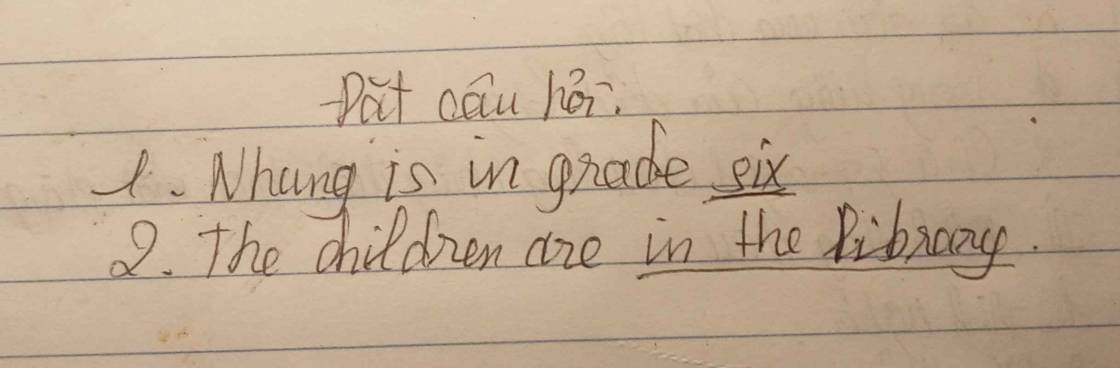 Đặt câu hỏi.
1. Nhung is in grade six
2. The children are in the library.